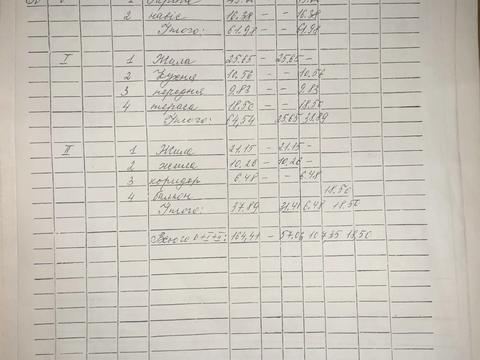 2 навіс 10.38 - - 10.38
Итого: 61.98 - - 61.98
I 1 Жила 25.65 - 25.65 -
2 Кухня 10.56 - - 10.56
3 передня 9.83 - - 9.83
4 тераса 18.50 - - 18.50
Итого: 64,54 25.65 38.89
II 1 Жила 21.15 - 21.15 -
2 жила 10,26 - 10,26 -
3 коридор 6.48 - - 6.48
4 балкон 18.50
Итого: 37.89 31.41 6.48 18.50
Всього 0+I+II: 164,41 - 57.06 107.35 18,50